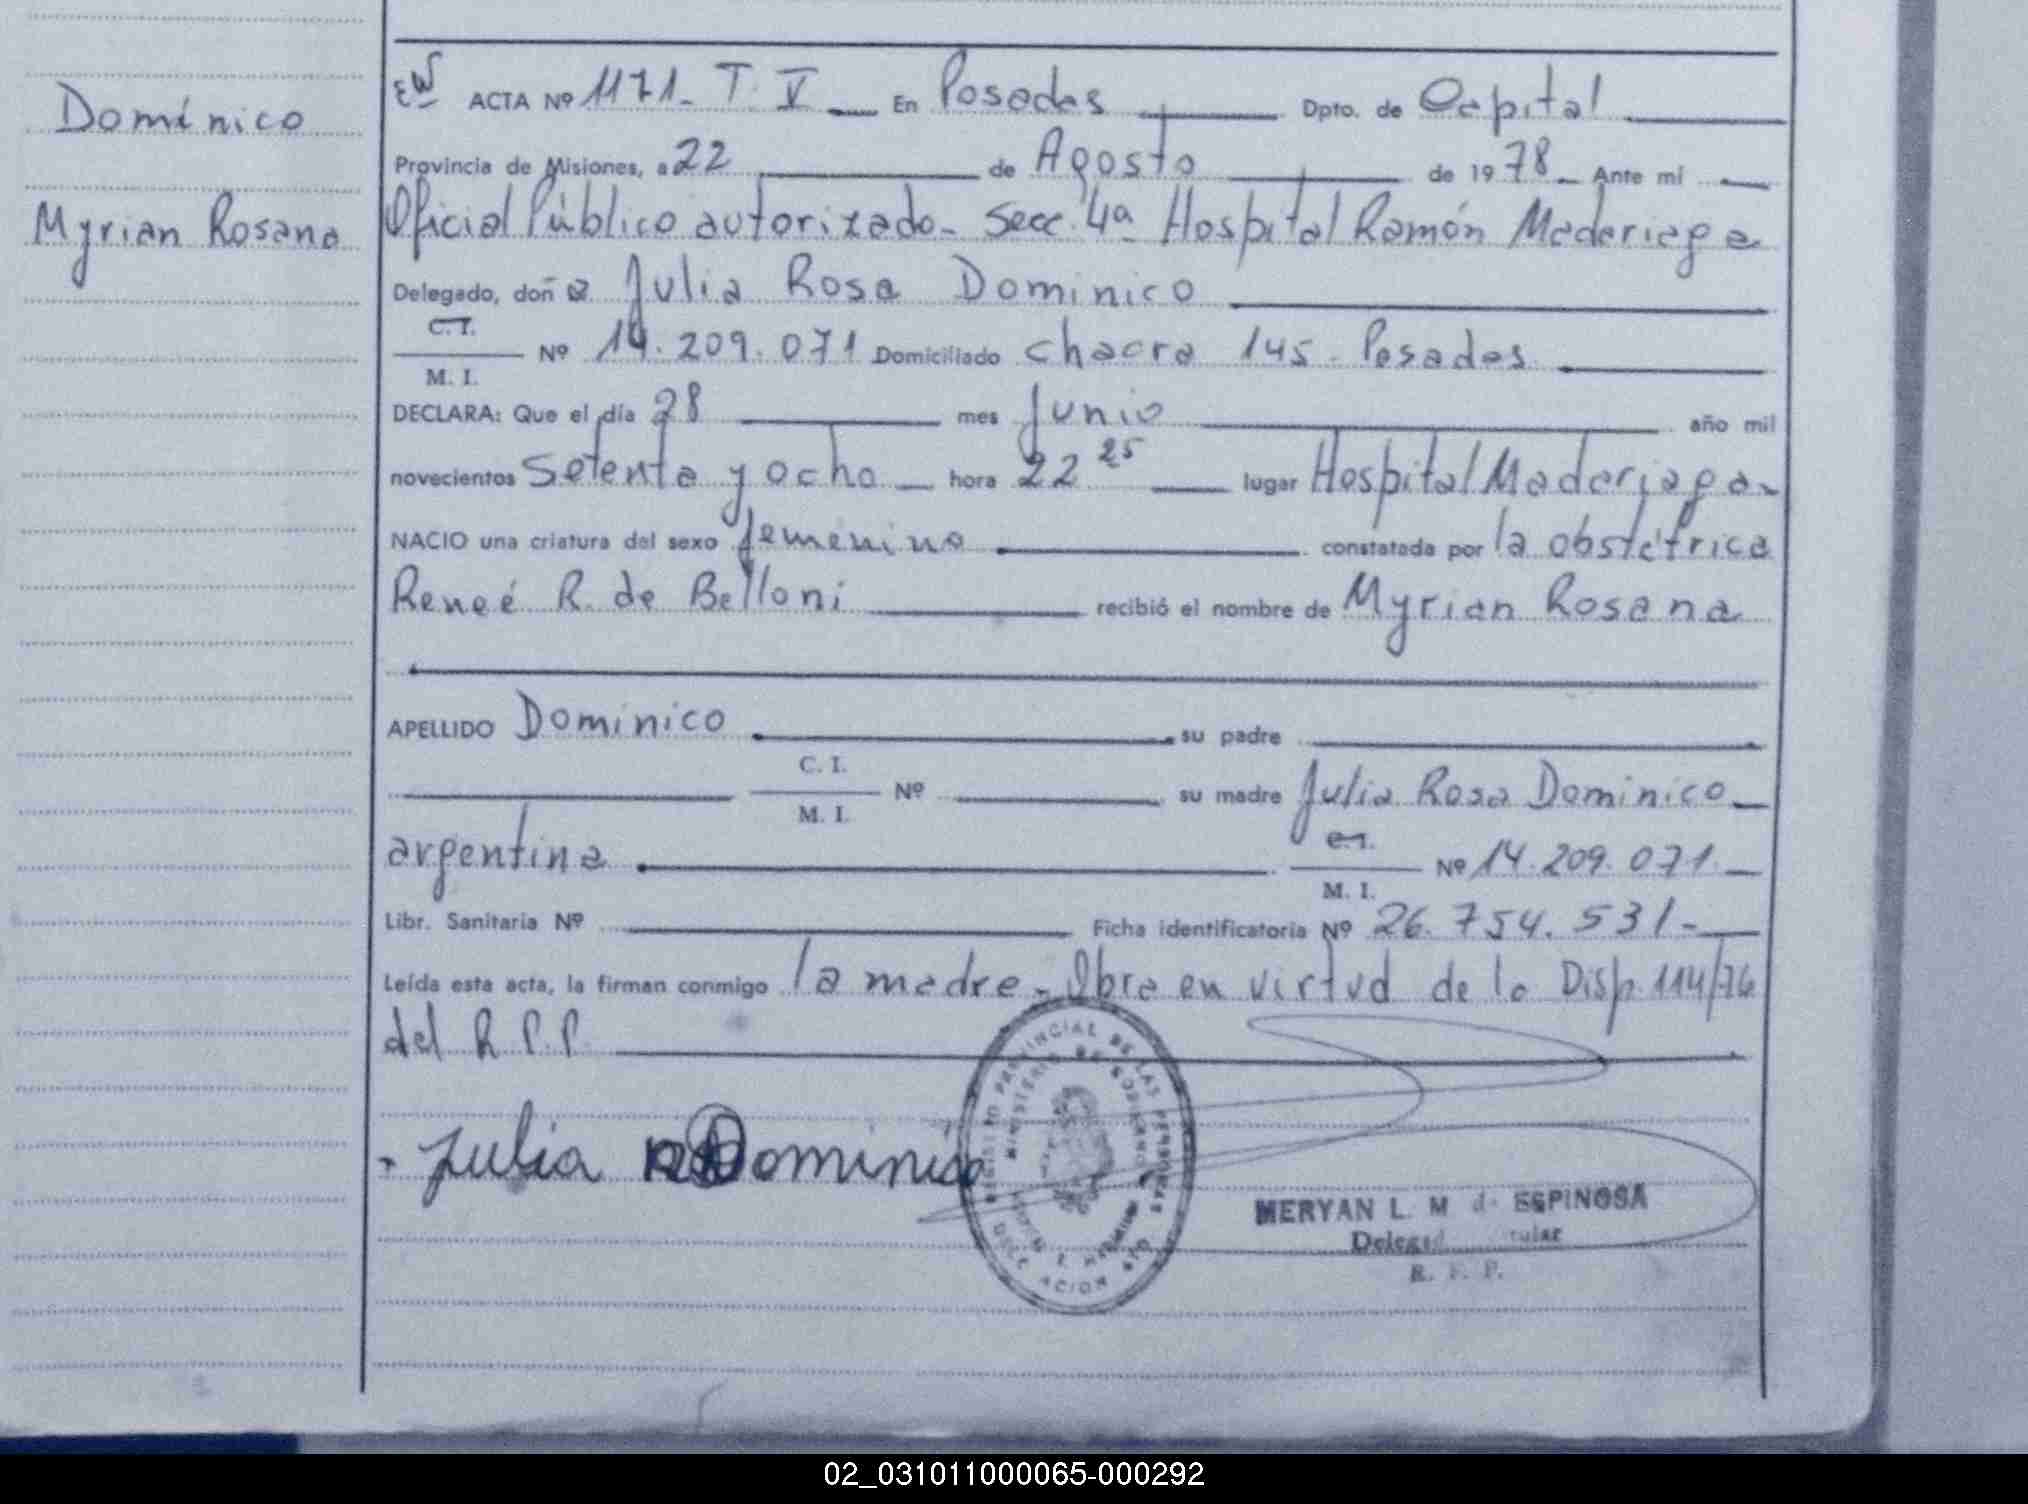 Domínico
Myrian Rosana
ACTA Nº 1171 - T. V En Posadas Dpto. de Capital
Provincia de Misiones, a 22 de Agosto de 1978 Ante mí
Oficial Público autorizado - Secc. 4ª Hospital Ramón Madariaga
Delegado, doña Julia Rosa Dominico
C. I.
M. I. Nº 14.209.071 Domiciliado chacra 145 - Posadas
DECLARA: Que el día 28 mes Junio año mil
novecientos Setenta y ocho hora 22 25 lugar Hospital Madariaga -
NACIO una criatura del sexo femenino constatada por la obstétrica
Reneé R. de Belloni recibió el nombre de Myrian Rosana
APELLIDO Dominico su padre
C. I.
M. I. Nº su madre Julia Rosa Dominico
argentina C. I.
M. I. Nº 14.209.071
Libr. Sanitaria Nº Ficha identificatoria Nº 26.754.531 -
Leída esta acta, la firman conmigo la madre - Obra en virtud de la Disp. 114/76
del R.P.P.
Julia R Dominico
REGISTRO PROVINCIAL DE LAS PERSONAS
MINISTERIO DE GOBIERNO
MERYAN L. M de ESPINOSA
R. P. P.
02_031011000065-000292